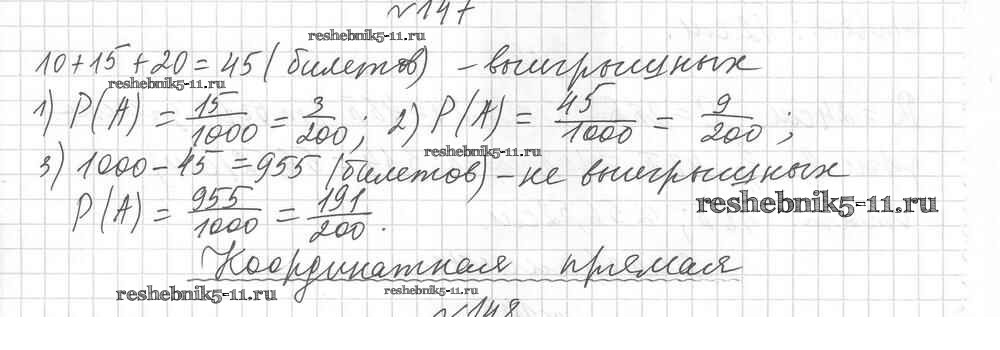 №147
reshebnik5-11.ru
10+15+20=45 (билетов) – выигрышных
reshebnik5-11.ru
1) P(A) = 15/1000 = 3/200; 2) P(A) = 45/1000 = 9/200;
reshebnik5-11.ru
3) 1000-45=955 (билетов) – не выигрышных
P(A) = 955/1000 = 191/200.
reshebnik5-11.ru
Координатная прямая
reshebnik5-11.ru reshebnik5-11.ru
№148